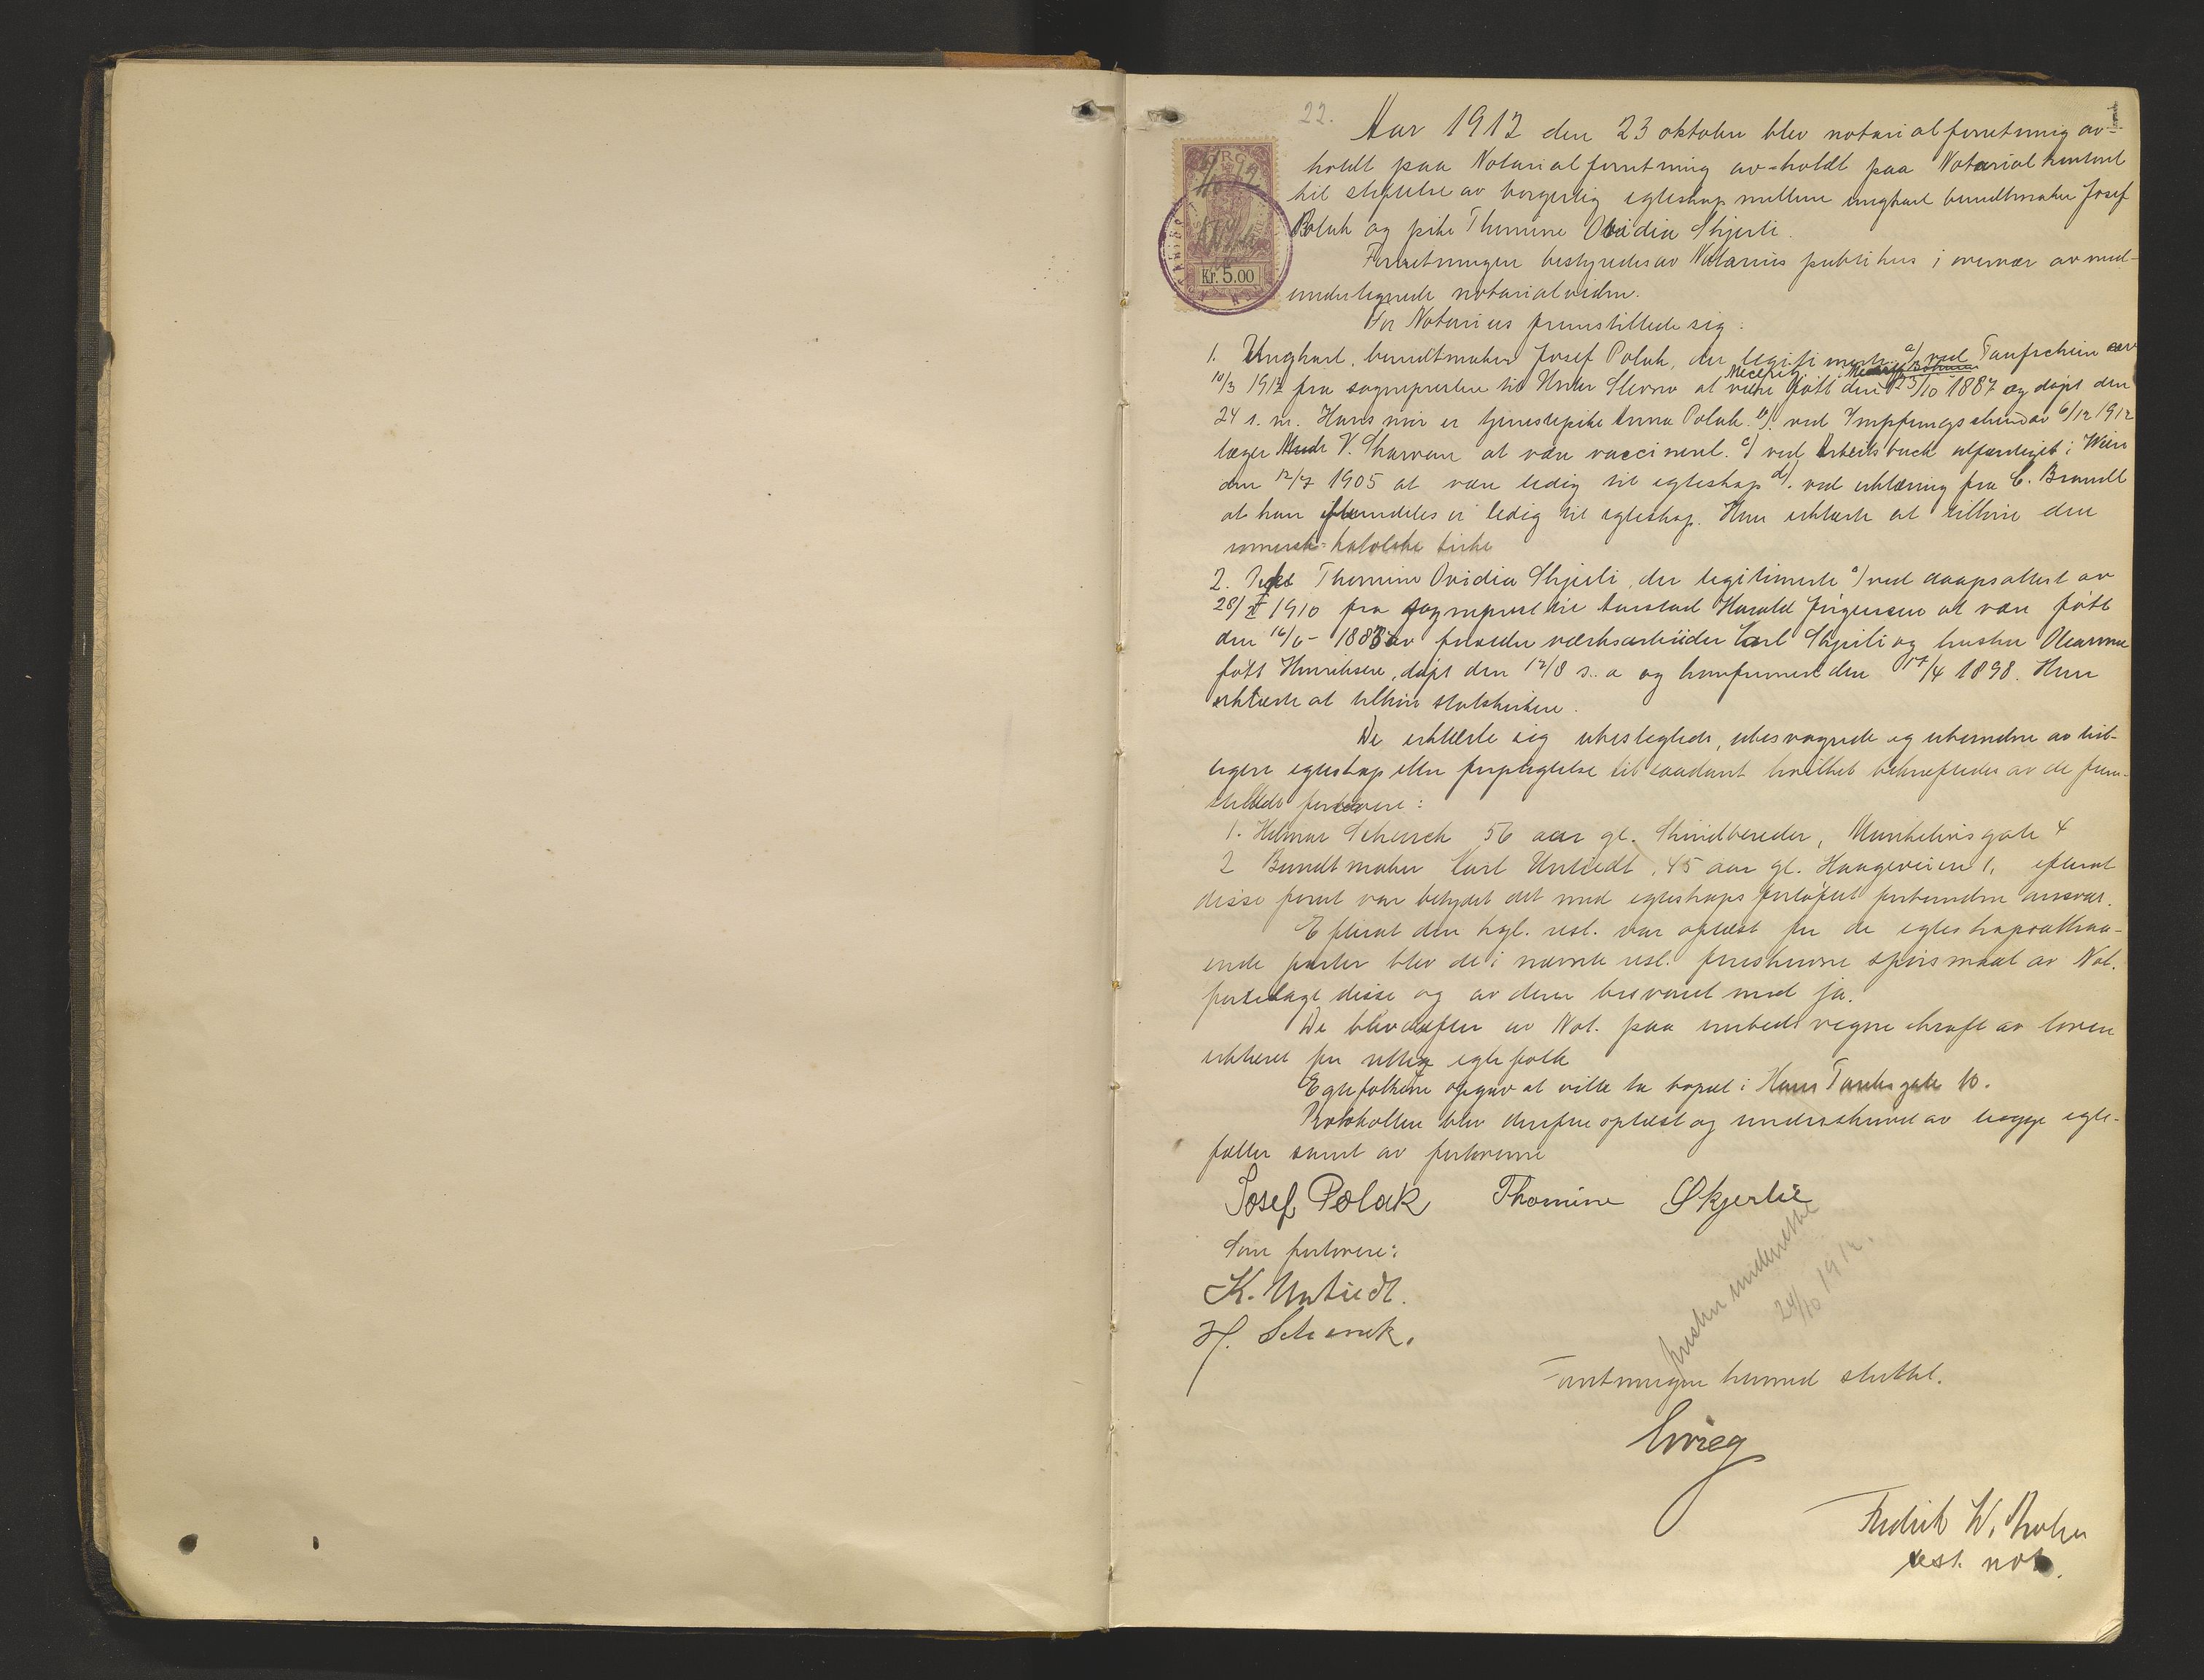 22.
1
Aar 1912 den 23 oktober blev notarialforretning av-
holdt paa Notarialforretning av-holdt paa Notarialkontoret
til stiftelse av borgerlig egteskap mellem ungkarl bundtmaker Josef
Polak og pike Thomine Ovidia Skjerli.
Forretningen bestyredes av Notarius publikus i overvær av med-
undertegnede notarialvidne.
For Notarius fremstillede sig:
1. Ungkarl, bundtmaker Josef Polak, der legitimerte a) ved Taufschein av
10/3 1912 fra sognepresten til Unter Slivno at være født den 23/10 1887 og døpt den
24 s. m. Hans mor er tjenestepike Anna Polak. b) ved Impfungsschein av 6/12 1912
læger V. Skarvan at være vaccineret. c) ved Arbeitsbuch utfærdiget i Wien
den 12/7 1905 at være ledig til egteskap d) ved erklæring fra C. Brandt
at han fremdeles er ledig til egteskap. Han erklærte at tilhøre den
romersk-katolske kirke
2. Pike Thomine Ovidia Skjerli, der legitimerte a) ved daapsattest av
28/X 1910 fra sogneprest til Aurstad Harald Jørgensen at være født
den 16/6 - 1883 av forældre værksarbeider Carl Skjerli og hustru Oleanna
født Henriksen, døpt den 12/8 s. a og konfirmert den 17/4 1898. Hun
erklærte at tilhøre statskirken.
De erklærte sig ubeslegtede, ubesvogrede og ubundne av tid-
ligere egteskap eller forpligtelse til saadant hvilket bekræftedes av de frem-
stillede forlovere:
1. Hilmar Schenck 56 aar gl. Skindbereder, Munkelivsgate 4
2 Bundtmaker Karl Untiedt, 45 aar gl. Haugeveien 1, efterat
disse forut var betydet det med egteskaps forløfte forbundne ansvar.
Efterat den kgl. resl. var oplæst for de egteskapsattraa-
ende parter blev de i nævnte resl. foreskrevne spørsmaal av Not.
forelagt disse og av dem besvaret med ja.
De blev derefter av Not. paa embeds vegne i kraft av loven
erklæret for rette egtefolk
Egtefolkene opgav at ville ta bopæl i Hans Tanks gate 10.
Protokollen blev derefter oplæst og underskrevet av begge egte-
fæller samt av forloverne
Josef Polak Thomine Skjerlie
Som forlovere:
K. Untiedt.
H. Schenck.
presten underrettet
24/10 1912.
Forretningen hermed sluttet.
Grieg
Fredrik W.
test. not.
Kr. 5.00